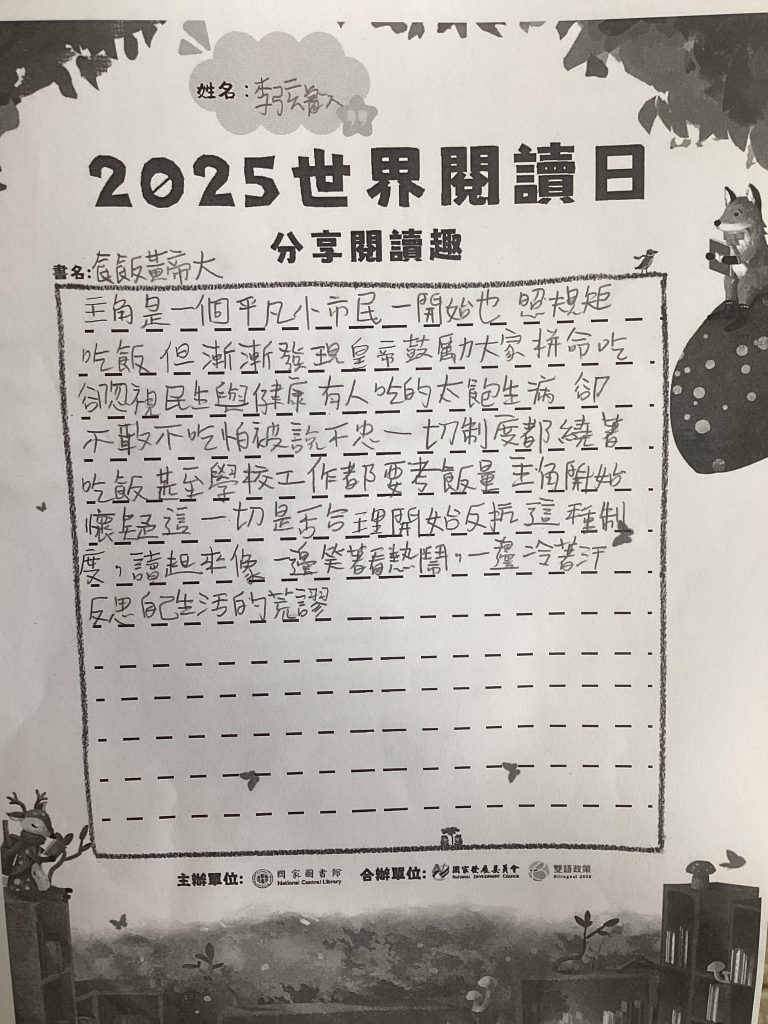 姓名：李弦
2025世界閱讀日
分享閱讀趣
書名：食飯黃帝大
主角是一個平凡小市民一開始也 照規矩
吃飯 但漸漸發現皇帝鼓勵大家拼命吃
卻忽視民生與健康 有人吃的太飽生病 卻
不敢不吃怕被說不忠一切制度都繞著
吃飯 甚至學校工作都要考飯量 主角開始
懷疑這一切是否合理開始反抗這種制
度，讀起來像一邊笑著看熱鬧，一邊冷著汗
反思自己生活的荒謬
主辦單位： 國家圖書館 National Central Library 合辦單位： 國家發展委員會 NATIONAL DEVELOPMENT COUNCIL 雙語政策 Bilingual 2030